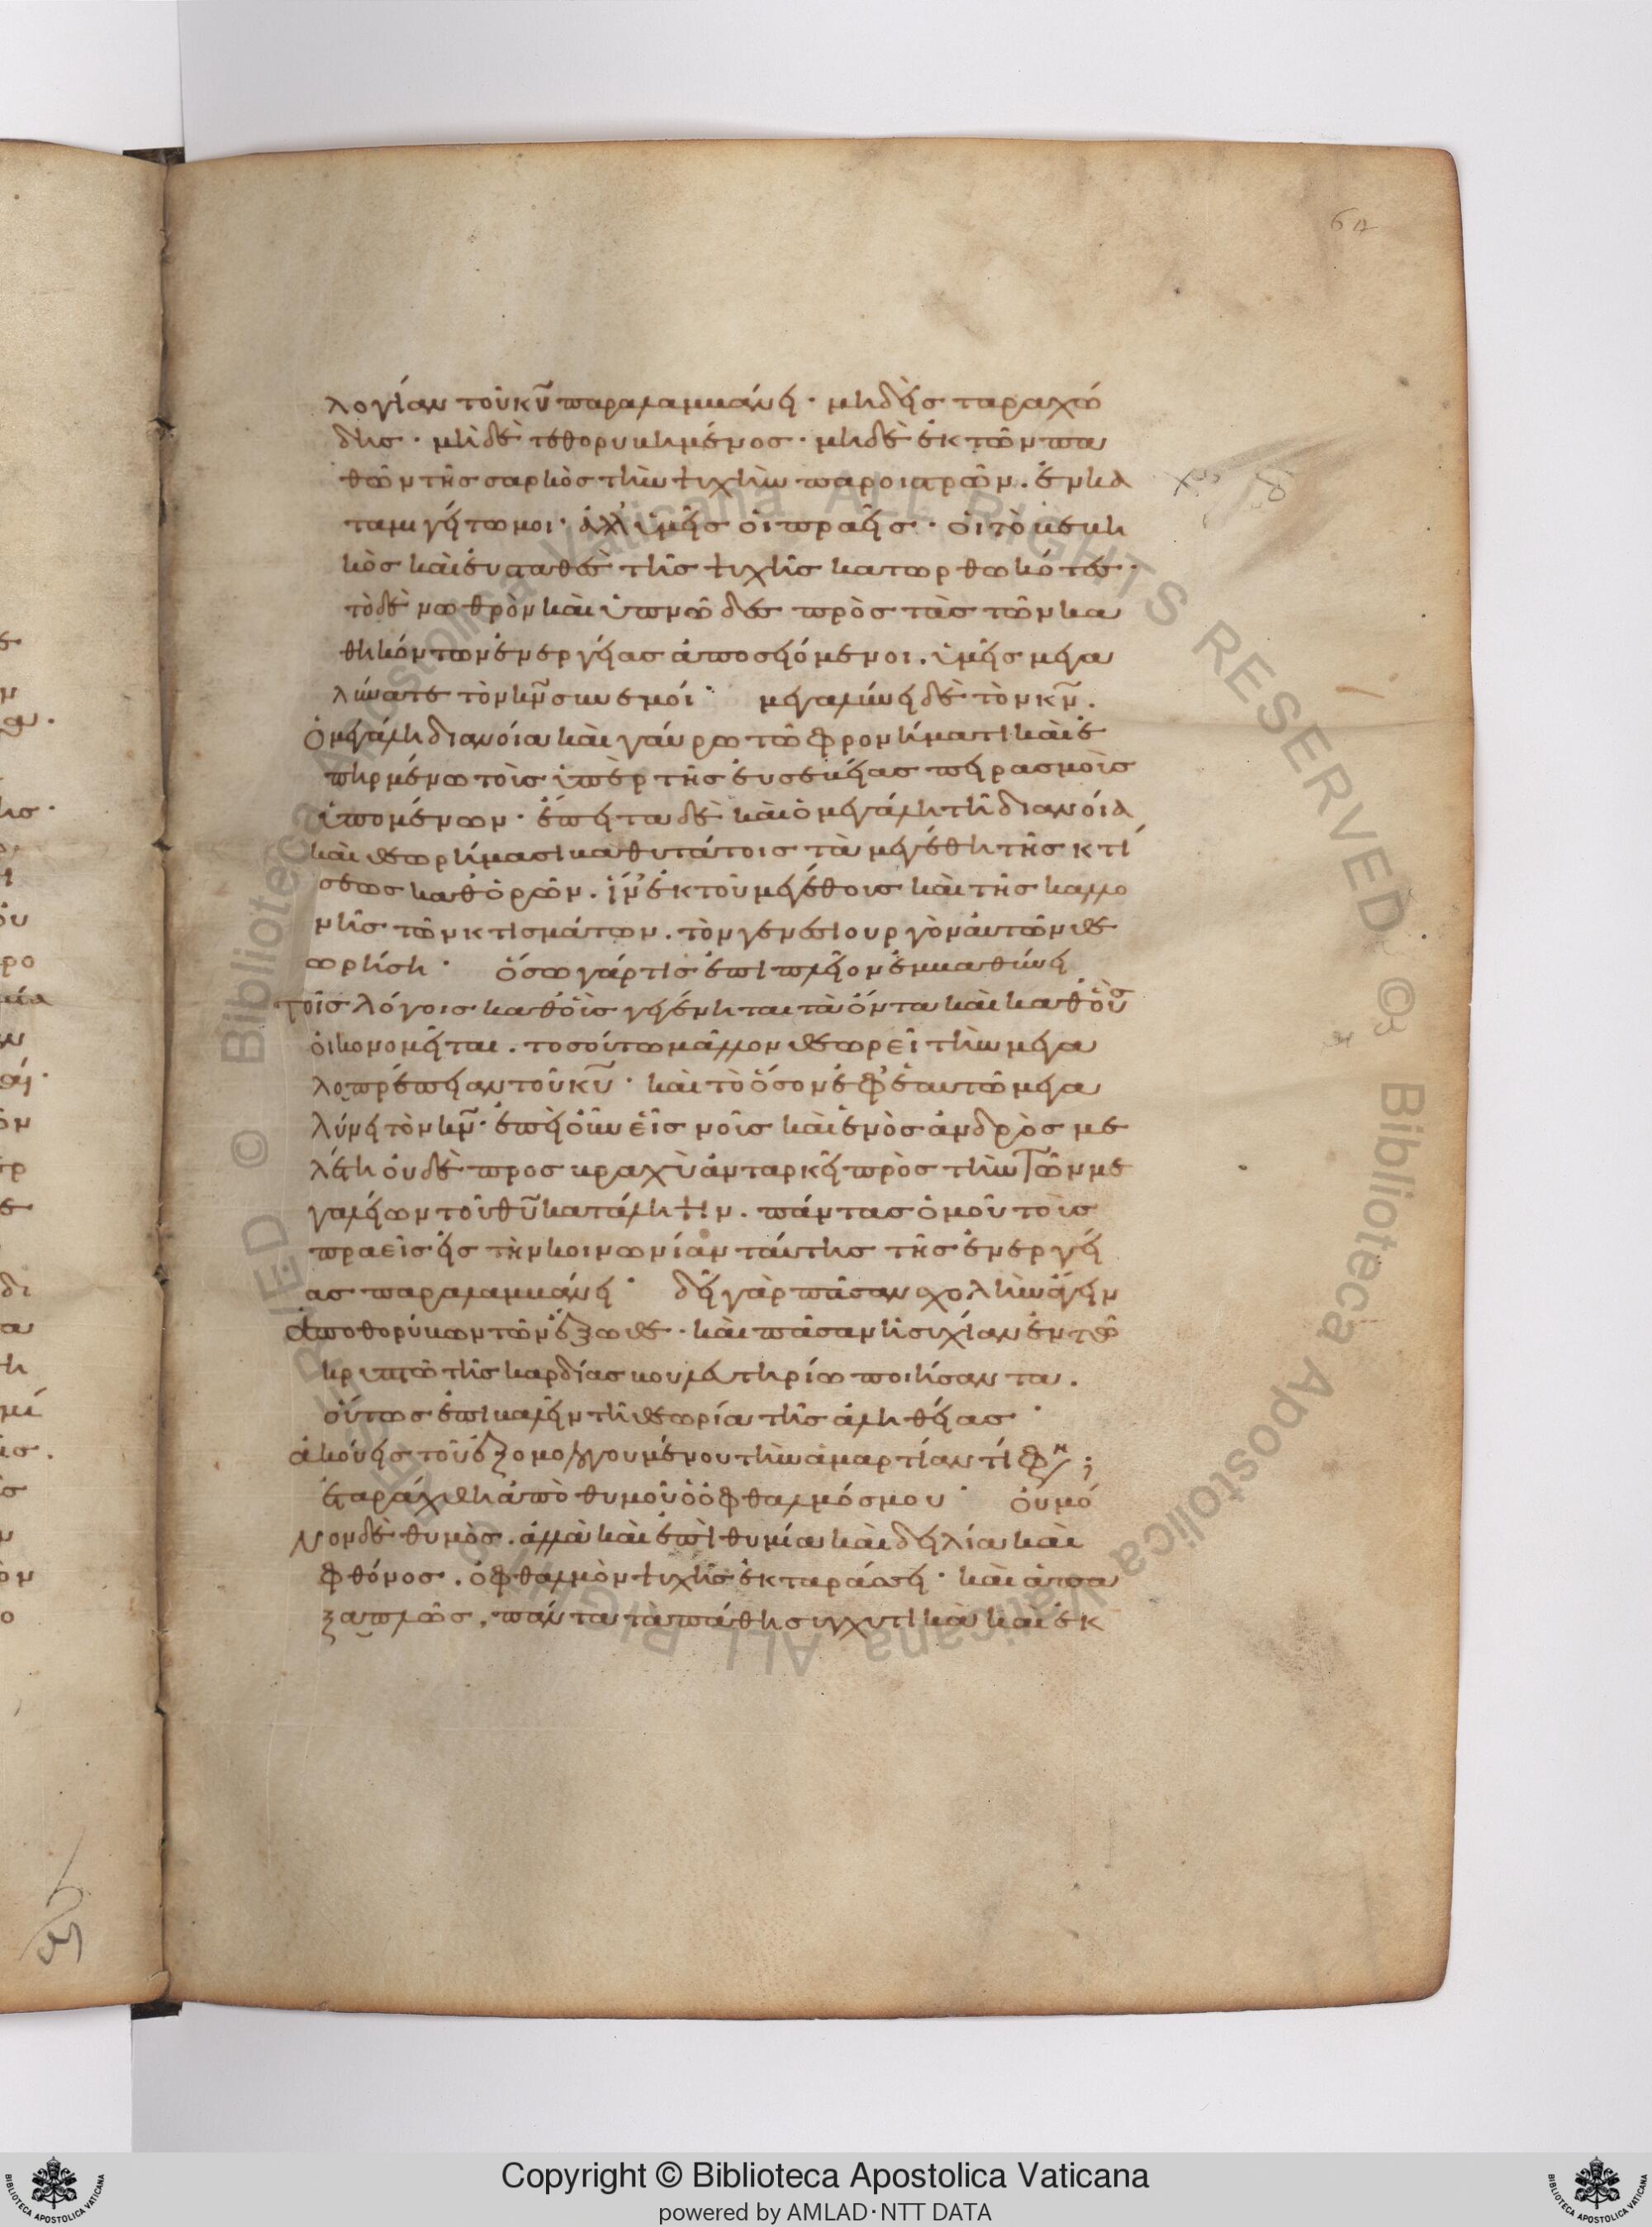 64
λογίαν τοῦ κῡ παραλαμβάνει · μηδεὶς ταραχώ
δης · μηδὲ τεθορυβημένος · μηδὲ ἐκ τῶν πα
θῶν τῆς σαρκὸς τὴν ψυχὴν παροιστρῶν . ἐγκα
ταμιγήτω μοι · ἀλλ' ὑμεῖς οἱ πραεῖς · οἱ τὸ βεβη
κὸς καὶ εὐσταθὲς τῆς ψυχῆς κατωρθωκότες ·
τὸ δὲ νωθρὸν καὶ ὑπνῶδες πρὸς τὰς τῶν κα
θηκόντων ἐνεργείας ἀποσειόμενοι . ὑμεῖς μεγα
λύνατε τὸν κν̄ σὺν ἐμοί · μεγαλύνει δὲ τὸν κν̄ .
ὁ μεγάλη διανοία καὶ γαύρω τῶ φρονήματι καὶ ἐ
πηρμένω τοὺς ὑπὲρ τῆς εὐσεβείας πειρασμοὺς
ὑπομένων · ἔπειτα δὲ καὶ ὁ μεγάλη τῆ διανοία
καὶ θεωρήμασι βαθυτάτοις τὰ μεγέθη τῆς κτί
σεως καθορῶν . ἵν' ἐκ τοῦ μεγέθους καὶ τῆς καλλο
νῆς τῶν κτισμάτων . τὸν γενεσιουργὸν αὐτῶν θε
ωρήση · ὅσω γάρ τις ἐπὶ πλεῖον ἐμβαθύνει
τοῖς λόγοις καθ' οὓς γεγένηται τὰ ὄντα καὶ καθ' οὓς
οἰκονομεῖται . τοσούτω μᾶλλον θεωρεῖ τὴν μεγα
λοπρέπειαν τοῦ κῡ · καὶ τὸ ὅσον ἐφ' ἑαυτῶ μεγα
λύνει τὸν κν̄ · ἐπεὶ οὖν εἷς νοῦς καὶ ἑνὸς ἀνδρὸς με
λέτη οὐδὲ πρὸς βραχὺ ἀνταρκεῖ πρὸς τὴν τῶν με
γαλείων τοῦ θῡ κατάληψιν . πάντας ὁμοῦ τοὺς
πραεῖς εἰς τὴν κοινωνίαν ταύτης τῆς ἐνεργεί
ας παραλαμβάνει · δεῖ γὰρ πᾶσαν σχολὴν ἄγειν
ἀπὸ θορύβων τῶν ἔξωθε · καὶ πᾶσαν ἡσυχίαν ἐν τῶ
κρυπτῶ τῆς καρδίας βουλευτηρίω ποιήσαντα .
οὕτως ἐπιβαλεῖν τῆ θεωρία τῆς ἀληθείας ·
ἀκούεις τοῦ ἐξομολογουμένου τὴν ἁμαρτίαν τί φη ;
ἐταράχθη ἀπὸ θυμοῦ ὁ ὀφθαλμός μου · οὐ μό
νον δὲ θυμὸς . ἀλλὰ καὶ ἐπιθυμία καὶ δειλία καὶ
φθόνος . ὀφθαλμὸν ψυχῆς ἐκταράσσει · καὶ ἁπα
ξαπλῶς , πάντα τὰ πάθη συγχυτικὰ καὶ ἐκ
Copyright © Biblioteca Apostolica Vaticana
powered by AMLAD·NTT DATA